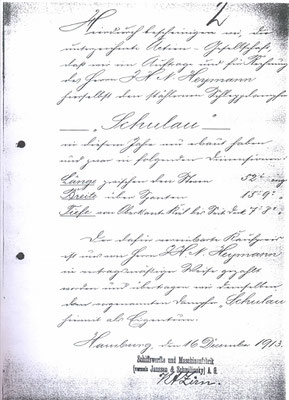 2
Hierdurch bescheinigen wir, die
unterzeichnete Actien-Gesellschaft,
dass wir im Auftrage und für Rechnung
des Herrn J. H. N. Heymann
hierselbst den stählernen Schleppdampfer
"Schulau"
in diesem Jahre neu erbaut haben
und zwar in folgenden Dimensionen:
Länge zwischen den Steven 52'
Breite über Spanten 15'9"
Tiefe 7'8"
Der dafür vereinbarte Kaufpreis
ist uns von Herrn J. H. N. Heymann
in vertragsmässiger Weise gezahlt
worden und übertragen wir demselben
den vorgenannten Dampfer "Schulau"
hiermit als Eigentum.
Hamburg, den 16 Dezember 1913.
Schiffswerfte und Maschinenfabrik
(vormals Janssen & Schmilinsky) A. G.